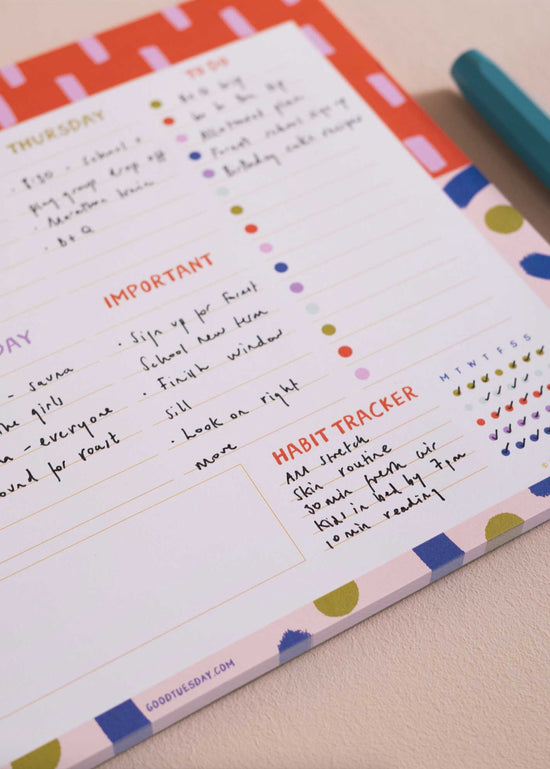 TO DO
B+Q
Allotment plan
Forest school sign up
Birthday cake recipe
THURSDAY
· 8:30 - School +
play group drop off
· Marathon train
· B+Q
IMPORTANT
· Sign up for Forest
School new term
· Finish window
sill
· Look on right
move
DAY
- sauna
the girls
- everyone
round for roast
HABIT TRACKER
M T W T F S S
AM stretch
Skin routine
30min fresh air
Kids in bed by 7pm
10min reading
GOODTUESDAY.COM